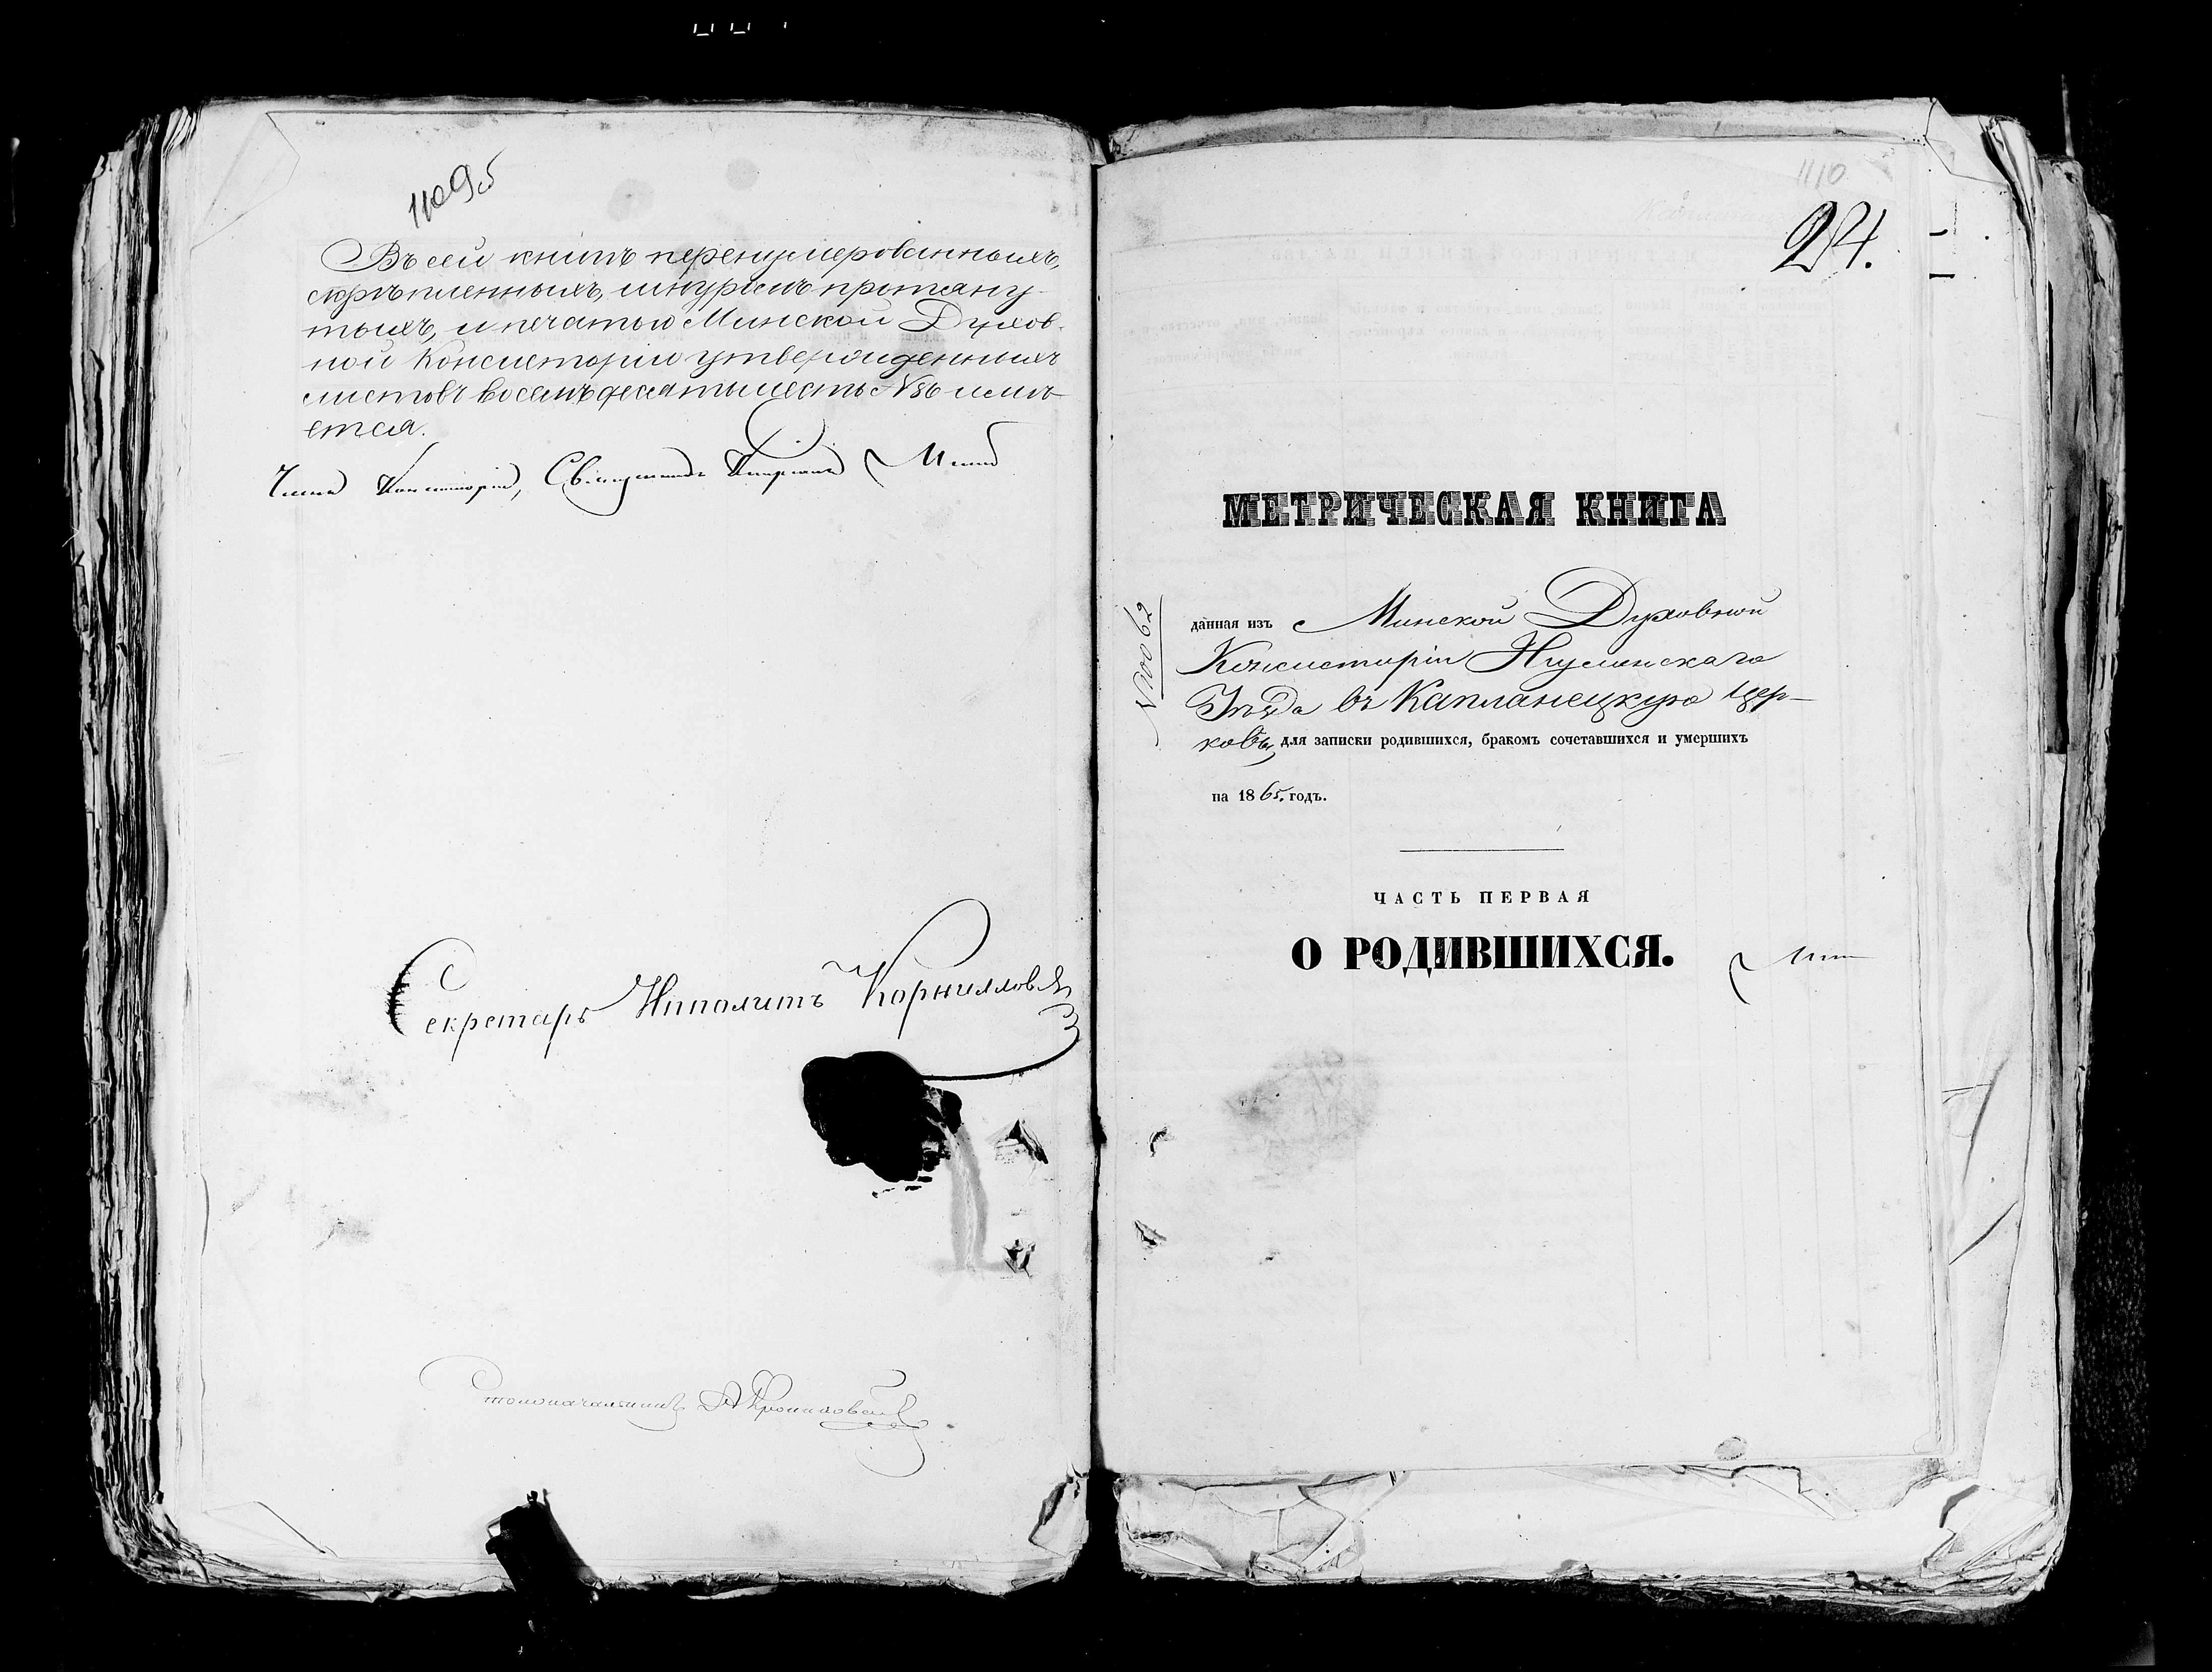 1109б
Въ сей книгѣ перенумерованныхъ,
скрѣпленныхъ, шнуромъ протяну-
тыхъ, и печатью Минской Духов-
ной Консисторіи утвержденныхъ
листовъ восемьдесятъ шесть №86 имѣ-
ется.
Членъ Консисторіи, Священникъ
Секретарь Ипполитъ Корниллов
Столоначальникъ
1110
24.
МЕТРИЧЕСКАЯ КНИГА
данная изъ Минской Духовной
Консисторіи Игуменскаго
Уѣзда въ Капланецкую Цер-
ковь, для записки родившихся, бракомъ сочетавшихся и умершихъ
на 1865. годъ.
ЧАСТЬ ПЕРВАЯ
О РОДИВШИХСЯ.